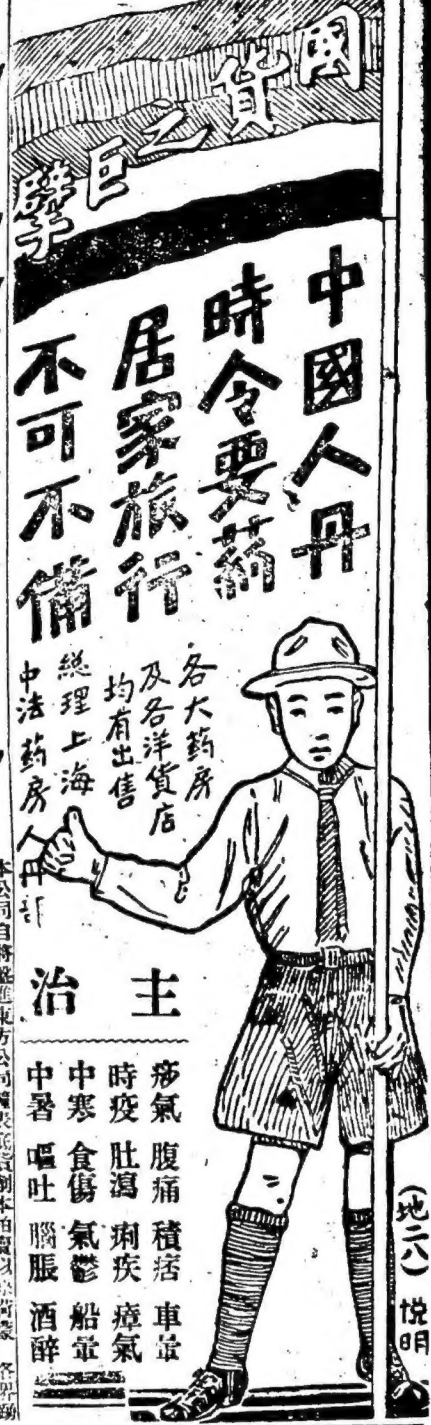 國貨之巨擘
中國人丹
時令要葯
居家旅行
不可不備
各大葯房
及各洋貨店
均有出售
總理上海
中法葯房人丹部
主治
痧氣 腹痛 積痞 車暈
時疫 肚瀉 痢疾 瘴氣
中寒 食傷 氣鬱 船暈
中暑 嘔吐 腦脹 酒醉
(地二八) 悅明